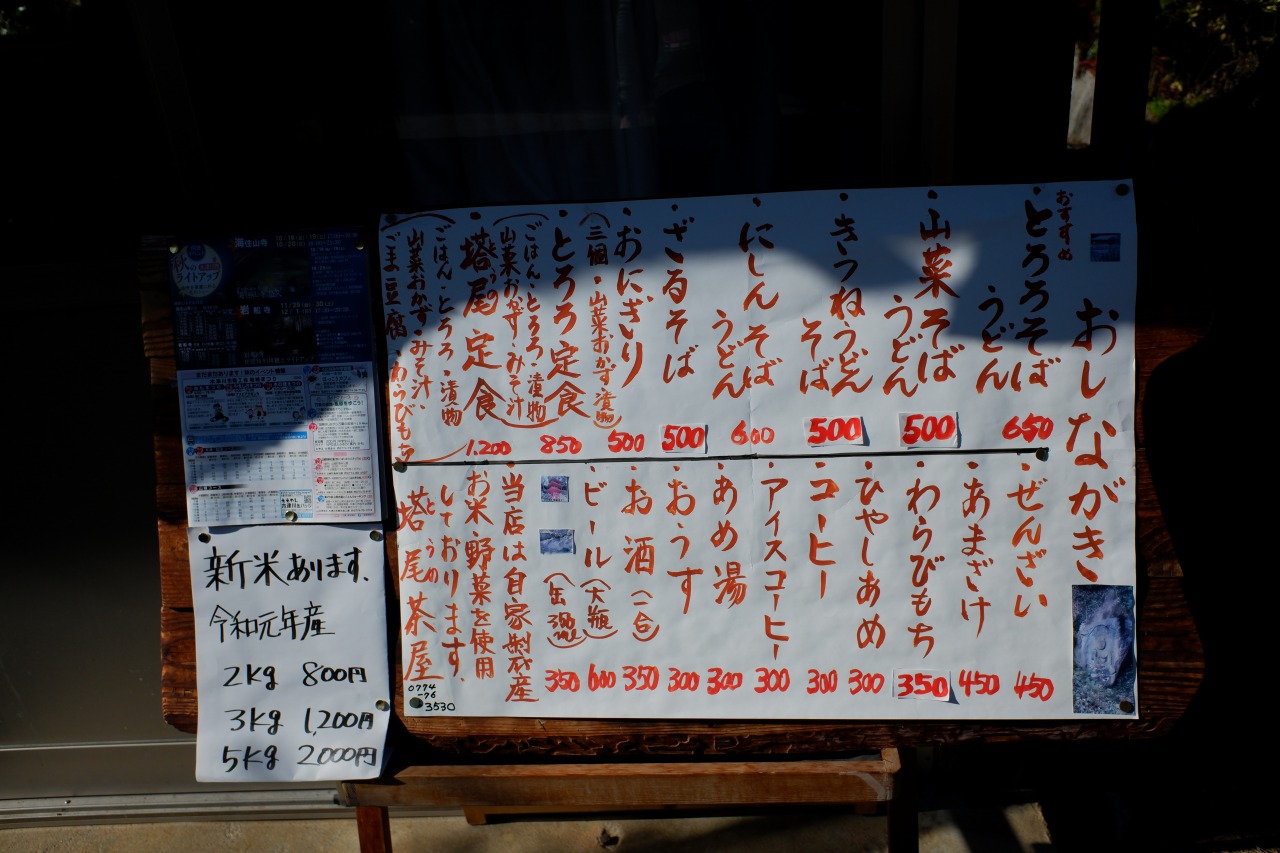 おしながき
おすすめ
・とろろそば
うどん
650
・山菜そば
うどん
500
・きつねうどん
そば
500
・にしんそば
うどん
600
・ざるそば
500
・おにぎり
(三個・山菜おかず・漬物)
500
・とろろ定食
(ごはん・とろろ・漬物
山菜おかず・みそ汁)
850
・塔尾定食
とうの
(ごはん・とろろ・漬物
山菜おかず・みそ汁・
ごま豆腐・わらびもち)
1.200
・ぜんざい
450
・あまざけ
450
・わらびもち
350
・ひやしあめ
300
・コーヒー
300
・アイスコーヒー
300
・あめ湯
300
・おうす
300
・お酒(一合)
350
・ビール(大瓶)
600
(缶350ml)
350
・当店は自家製産
お米野菜を使用
しております。
塔尾茶屋
とうの
0774
-76
3530
秋の
ライトアップ
海住山寺
岩船寺
新米あります。
令和元年産
2Kg 800円
3Kg 1,200円
5Kg 2000円